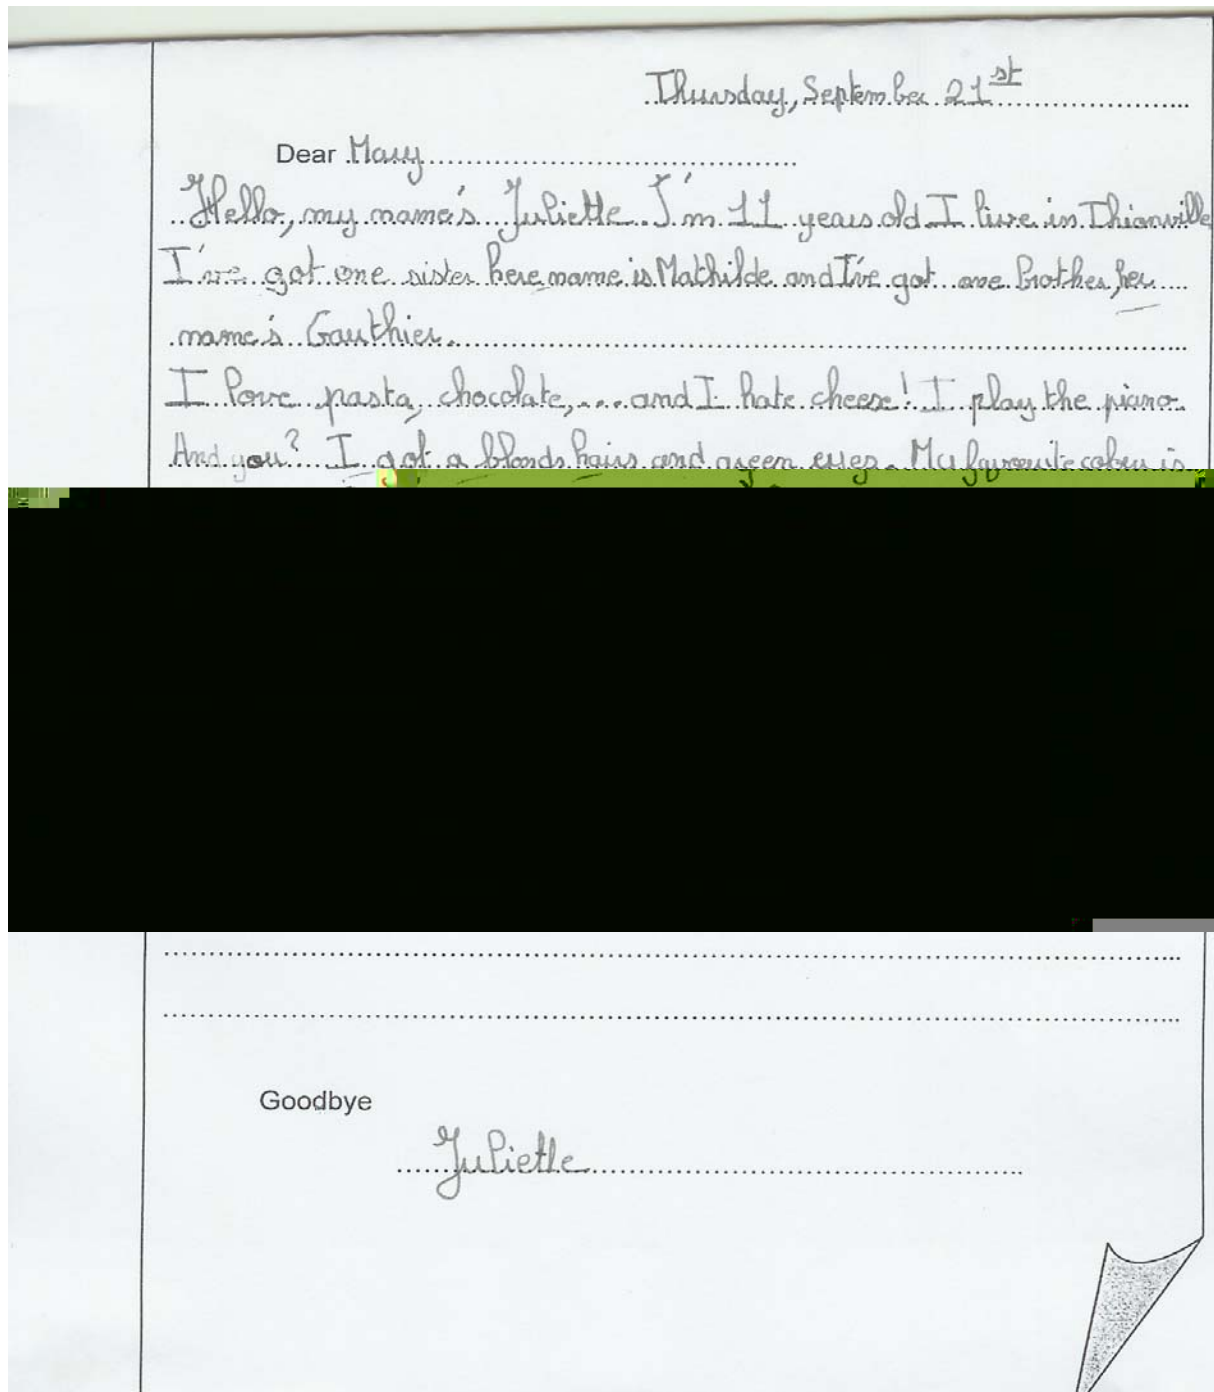 Thursday, September 21st
Dear Mary
Hello, my name's Juliette I'm 11 years old I live in Thianville
I've got one sister here name is Mathilde and I've got one brother, her
name's Gauthier.
I love pasta, chocolate,... and I hate cheese! I play the piano
And you? I got a blonds hairs and green eyes. My favourite colour is
Goodbye
Juliette